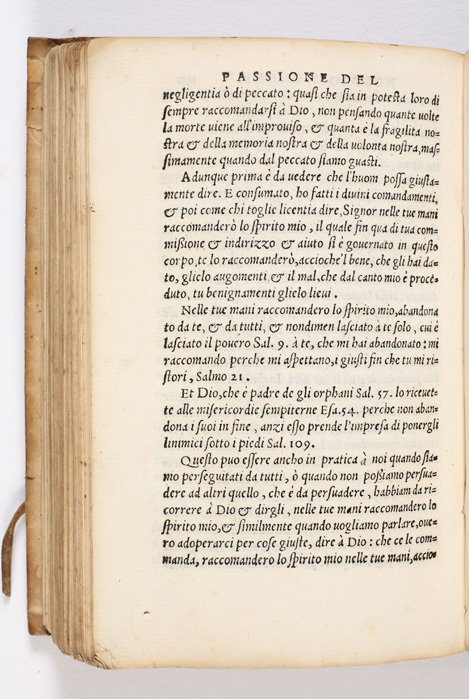 PASSIONE DEL
negligentia ò di peccato : quasi che sia in potesta loro di
sempre raccomandarsi à Dio, non pensando quante uolte
la morte uiene all'improuiso, & quanta è la fragilita no-
stra & della memoria nostra & della uolonta nostra, mas
simamente quando dal peccato siamo guasti.
Adunque prima è da uedere che l'huom possa giusta-
mente dire. E consumato, ho fatti i diuini comandamenti,
& poi come chi toglie licentia dire, Signor nelle tue mani
raccomanderò lo spirito mio, il quale fin qua di tua com-
missione & indirizzo & aiuto si è gouernato in questo
corpo, te lo raccomanderò, accioche'l bene, che gli hai da-
to, glielo augomenti & il mal, che dal canto mio è proce-
duto, tu benignamenti glielo lieui.
Nelle tue mani raccomandero lo spirito mio, abandona
to da te, & da tutti, & nondimen lasciato à te solo, cui è
lasciato il pouero Sal. 9. à te, che mi hai abandonato : mi
raccomando perche mi aspettano, i giusti fin che tu mi ri-
stori, Salmo 21.
Et Dio, che è padre de gli orphani Sal. 57. lo riceuet-
te alle misericordie sempiterne Esa. 54. perche non aban-
dona i suoi in fine, anzi esso prende l'impresa di ponergli
linimici sotto i piedi Sal. 109.
Questo puo essere ancho in pratica à noi quando sia-
mo perseguitati da tutti, ò quando non possiamo persua-
dere ad altri quello, che è da persuadere, habbiam da ri-
correre à Dio & dirgli, nelle tue mani raccomandero lo
spirito mio, & similmente quando uogliamo parlare, oue-
ro adoperarci per cose giuste, dire à Dio : che ce le com-
manda, raccomandero lo spirito mio nelle tue mani, accio